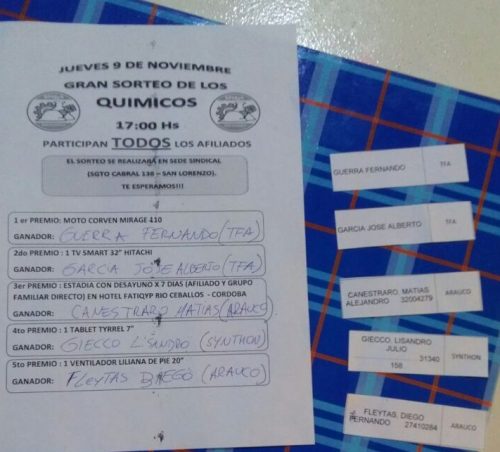 JUEVES 9 DE NOVIEMBRE
GRAN SORTEO DE LOS
QUIMICOS
17:00 Hs
PARTICIPAN TODOS LOS AFILIADOS
EL SORTEO SE REALIZARÁ EN SEDE SINDICAL
(SGTO CABRAL 138 – SAN LORENZO).
TE ESPERAMOS!!!
1 er PREMIO: MOTO CORVEN MIRAGE 110
GANADOR: GUERRA FERNANDO (TFA)
2do PREMIO : 1 TV SMART 32" HITACHI
GANADOR: GARCIA JOSE ALBERTO (TFA)
3er PREMIO: ESTADIA CON DESAYUNO X 7 DIAS (AFILIADO Y GRUPO
FAMILIAR DIRECTO) EN HOTEL FATIQYP RIO CEBALLOS - CORDOBA
GANADOR: CANESTRARO MATIAS (ARAUCO)
4to PREMIO : 1 TABLET TYRREL 7"
GANADOR: GIECCO LISANDRO (SYNTHON)
5to PREMIO : 1 VENTILADOR LILIANA DE PIE 20"
GANADOR: FLEYTAS DIEGO (ARAUCO)
GUERRA FERNANDO TFA
GARCIA JOSE ALBERTO TFA
CANESTRARO. MATIAS
ALEJANDRO 32004279 ARAUCO
GIECCO. LISANDRO
JULIO
31340 SYNTHON
158
FLEYTAS. DIEGO
FERNANDO 27410284 ARAUCO